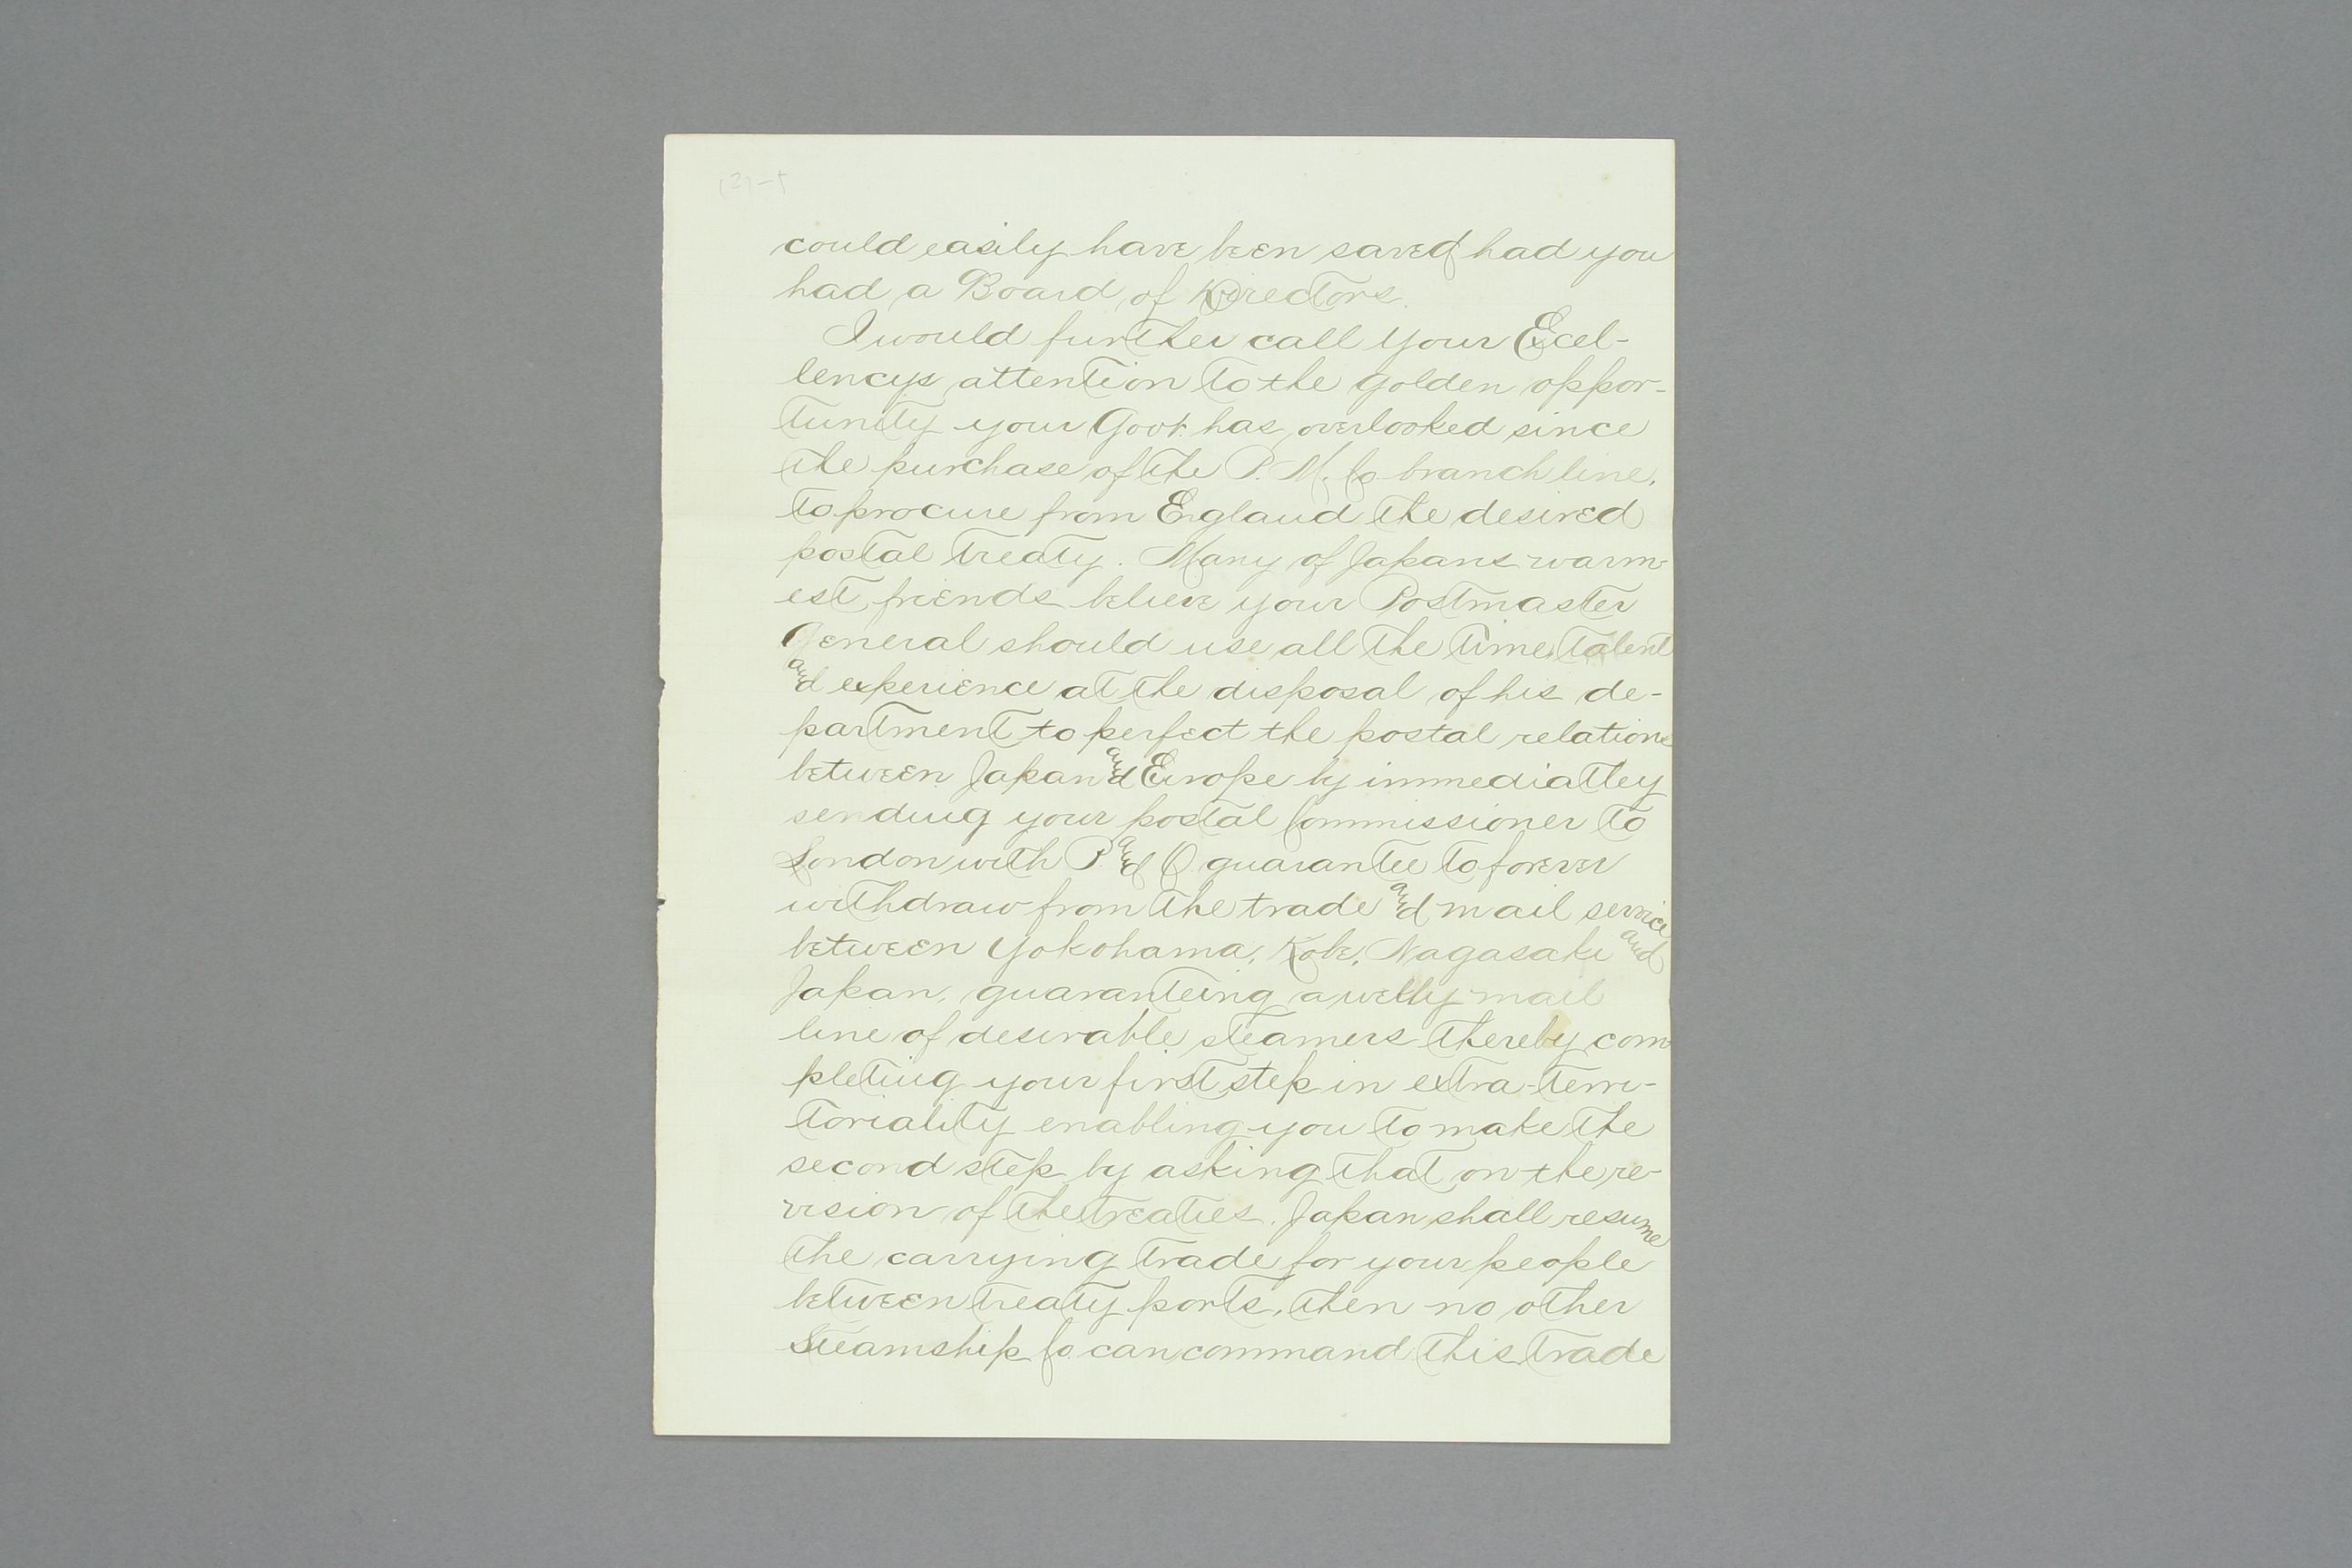 (2)-5
could easily have been saved had you
had a Board of Directors.
I would further call your Excel-
lencys attention to the golden oppor-
tunity your Govt. has overlooked since
the purchase of the P. M. Co branch line,
to procure from England the desired
postal treaty. Many of Japans warm-
est friends believe your Postmaster
General should use all the time, talent
and experience at the disposal of his de-
partment to perfect the postal relations
between Japan and Europe by immediatley
sending your postal Commissioner to
London with P. and O. guarantee to forever
withdraw from the trade and mail service
between Yokohama, Kobe, Nagasaki and
Japan, guaranteing a weekly mail
line of desirable steamers thereby com-
pleting your first step in extra-terri-
toriality enabling you to make the
second step by asking that on the re-
vision of the treaties. Japan shall resume
the carrying trade for your people
between treaty ports, then no other
Steamship Co. can command this trade